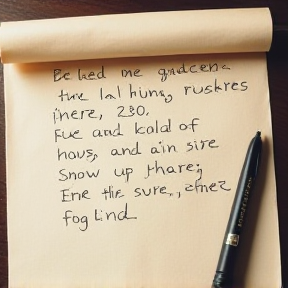 Be ked me
the lal hung, ruskres
inere, 230.
Fue and kold of
hous, and ain sire
Snow up thare;
Ene the sure.,
fog lind